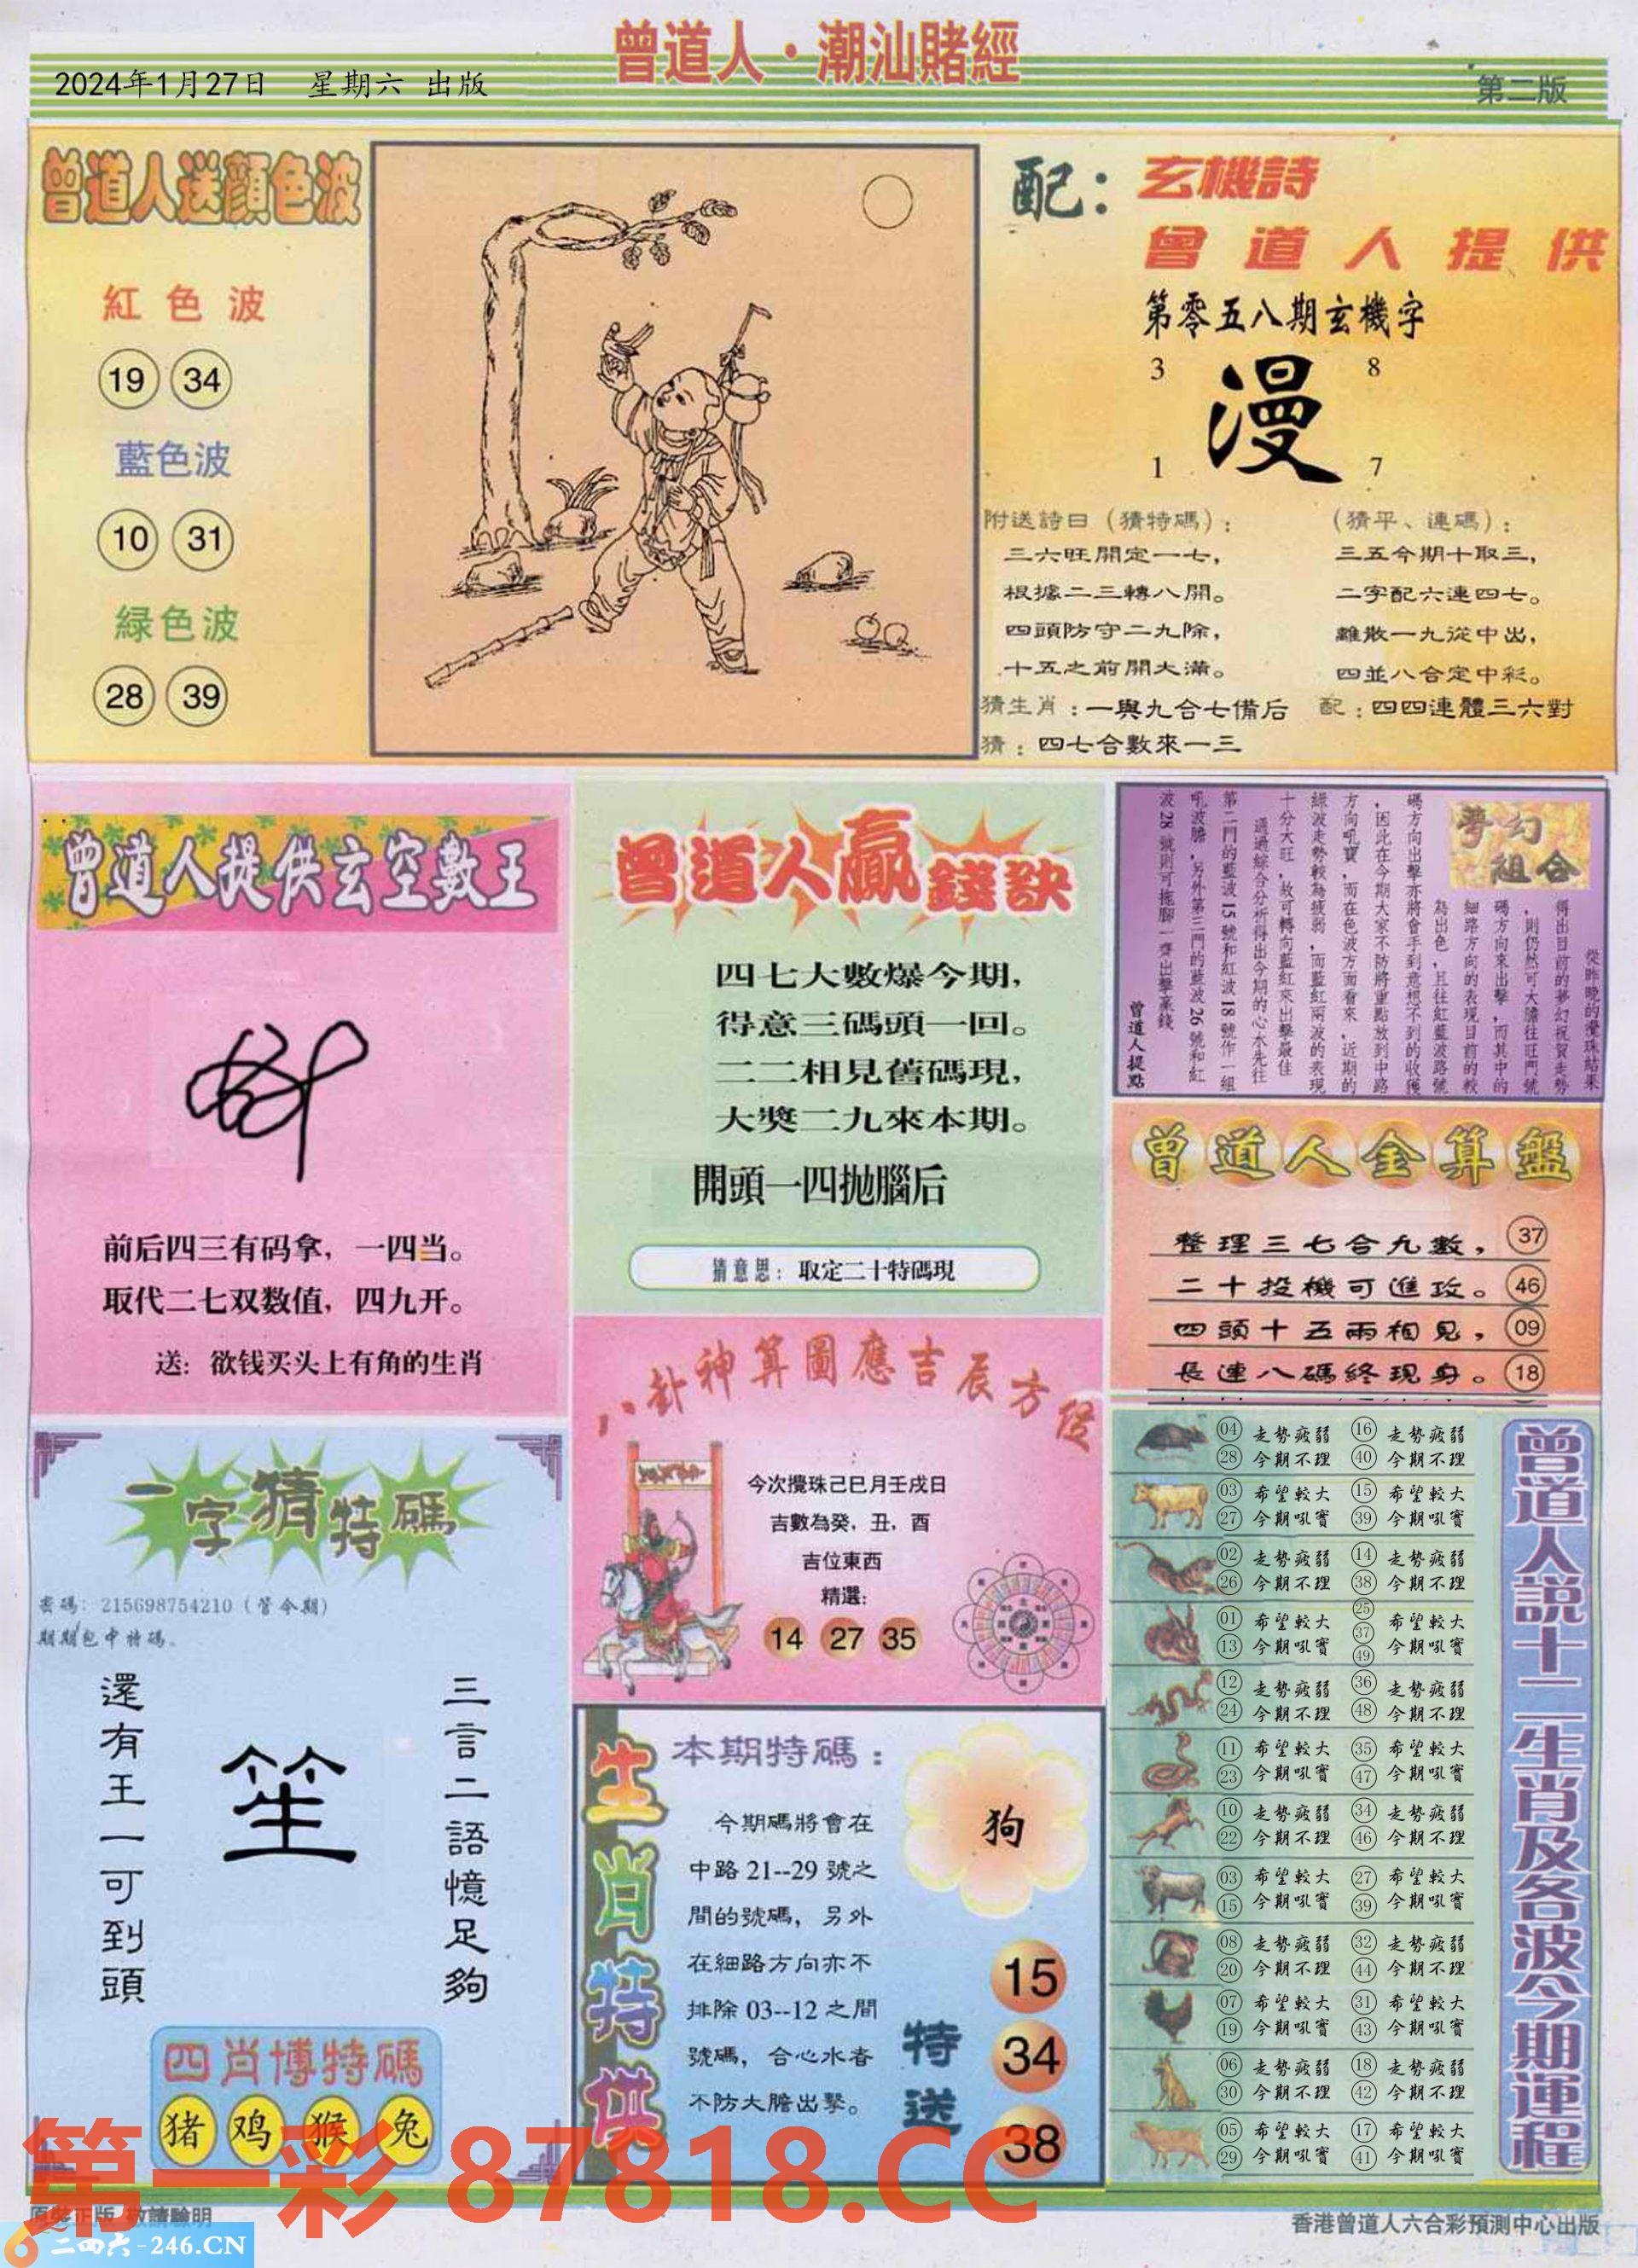 曾道人·潮汕賭經
2024年1月27日 星期六 出版
第二版
曾道人送顔色波
紅色波
19 34
藍色波
10 31
緑色波
28 39
配：玄機詩
曾道人提供
第零五八期玄機字
3 8
漫
1 7
附送詩日（猜特碼）：
三六旺開定一七，
根據二三轉八開。
四頭防守二九除，
十五之前開大滿。
（猜平、連碼）：
三五今期十取三，
二字配六連四七。
離散一九從中出，
四並八合定中彩。
猜生肖：一與九合七備后
配：四四連體三六對
猜：四七合數來一三
曾道人提供玄空數王
前后四三有码拿，一四当。
取代二七双数值，四九开。
送：欲钱买头上有角的生肖
曾道人贏錢訣
四七大數爆今期，
得意三碼頭一回。
二二相見舊碼現，
大獎二九來本期。
開頭一四抛腦后
猜意思：取定二十特碼現
夢幻
組合
從昨晚的攪珠結果
得出目前的夢幻祝賀走勢
，則仍然可大膽往旺門號
碼方向來出擊，而其中的
細路方向的表現目前的較
為出色，且往紅藍波路號
碼方向出擊亦將會手到意想不到的收獲
，因此在今期大家不防將重點放到中路
方向吼寶，而在色波方面看來，近期的
緑波走勢較為疲弱，而藍紅兩波的表現
十分大旺，故可轉向藍紅來出擊最佳
通過綜合分析得出今期的心水先往
第二門的藍波15號和紅波18號作一組
吼波膽，另外第三門的藍波26號和紅
波28號則可拖脚一齊出擊贏錢
曾道人提點
曾道人金算盤
整理三七合九數，37
二十投機可進攻。46
四頭十五兩相見，09
長連八碼終現身。18
八卦神算圖應吉辰方位
今次攪珠己巳月壬戌日
吉數為癸，丑，酉
吉位東西
精選：
14 27 35
一字猜特碼
密碼：215698754210（管今期）
期期包中特碼。
三言二語憶足夠
笙
還有王一可到頭
四肖博特碼
猪 鸡 猴 兔
生肖特供
本期特碼：
今期碼將會在
中路21--29號之
間的號碼，另外
在細路方向亦不
排除03--12之間
號碼，合心水者
不防大膽出擊。
狗
特送
15
34
38
曾道人説十二生肖及各波今期運程
04 走勢疲弱 16 走勢疲弱
28 今期不理 40 今期不理
03 希望較大 15 希望較大
27 今期吼寶 39 今期吼寶
02 走勢疲弱 14 走勢疲弱
26 今期不理 38 今期不理
01 希望較大 25 37 希望較大
13 今期吼寶 49 今期吼寶
12 走勢疲弱 36 走勢疲弱
24 今期不理 48 今期不理
11 希望較大 35 希望較大
23 今期吼寶 47 今期吼寶
10 走勢疲弱 34 走勢疲弱
22 今期不理 46 今期不理
03 希望較大 27 希望較大
15 今期吼寶 39 今期吼寶
08 走勢疲弱 32 走勢疲弱
20 今期不理 44 今期不理
07 希望較大 31 希望較大
19 今期吼寶 43 今期吼寶
06 走勢疲弱 18 走勢疲弱
30 今期不理 42 今期不理
05 希望較大 17 希望較大
29 今期吼寶 41 今期吼寶
第一彩 87818.CC
原裝正版 敬請驗明
二四六-246.CN
香港曾道人六合彩預測中心出版